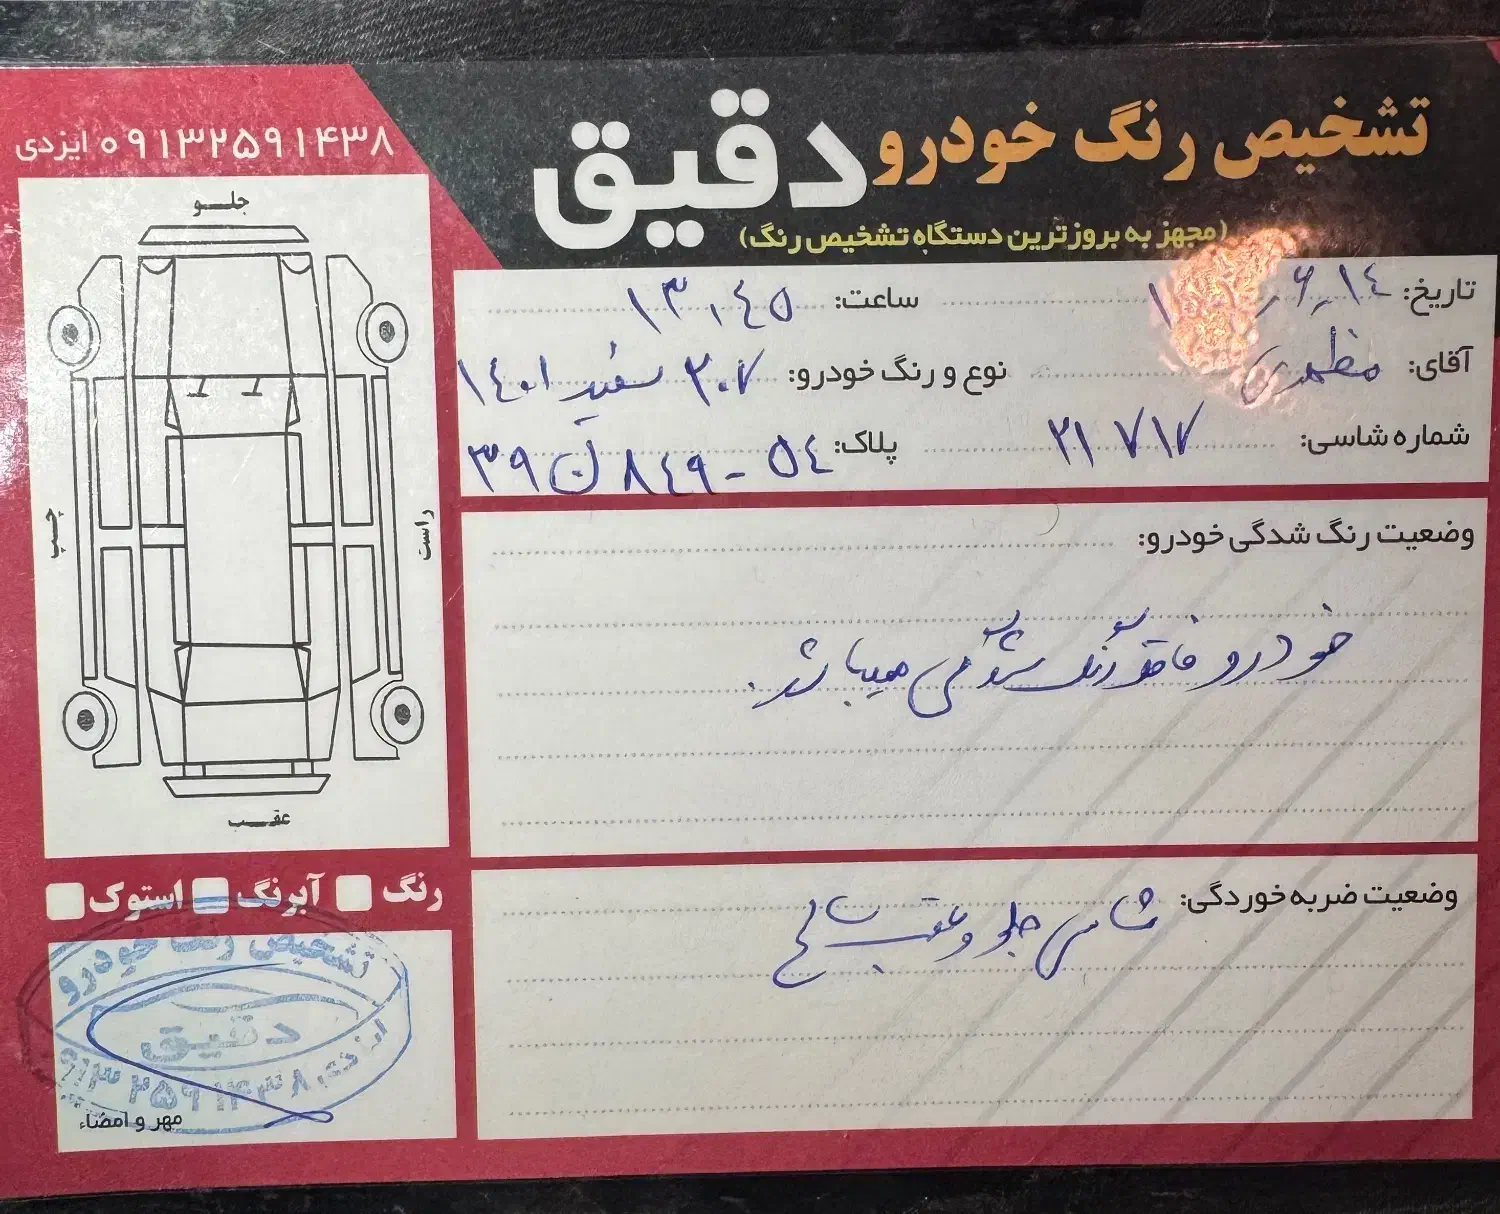 تشخیص رنگ خودرو دقیق
(مجهز به بروزترین دستگاه تشخیص رنگ)
۰۹۱۳۲۵۹۱۴۳۸ ایزدی
تاریخ: ۱۴
ساعت: ۱۳:۴۵
آقای: مظهری
نوع و رنگ خودرو: ۲۰۷ سفید ۱۴۰۱
شماره شاسی: ۲۱۷۱۷
پلاک: ۵۴ - ۸۴۹ ن ۳۹
جلو
چپ
راست
عقب
وضعیت رنگ شدگی خودرو:
خودرو فاقد رنگ شدگی میباشد.
رنگ آبرنگ استوک
وضعیت ضربه خوردگی: شاسی جلو و عقب سالم
تشخیص رنگ خودرو
دقیق
ایزدی ۰۹۱۳۲۵۹۱۴۳۸
مهر و امضاء